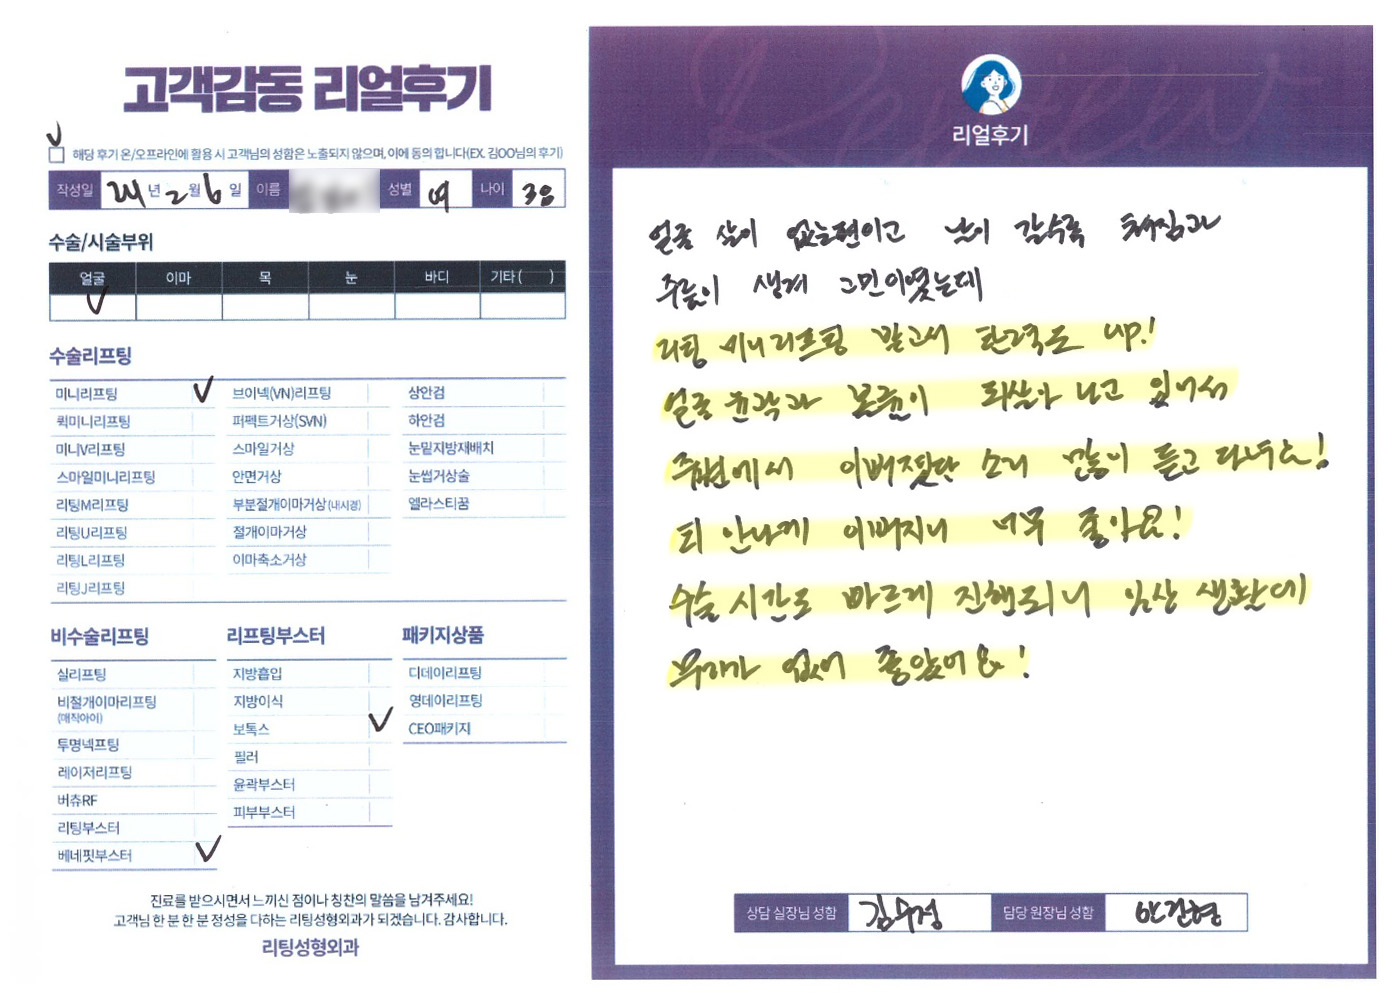 고객감동 리얼후기
해당 후기 온/오프라인에 활용 시 고객님의 성함은 노출되지 않으며, 이에 동의 합니다(EX. 김OO님의 후기)
작성일 24년 2월 6일 이름 성별 여 나이 38
수술/시술부위
얼굴 이마 목 눈 바디 기타( )
수술리프팅
미니리프팅 브이넥(VN)리프팅 상안검
퀵미니리프팅 퍼펙트거상(SVN) 하안검
미니V리프팅 스마일거상 눈밑지방재배치
스마일미니리프팅 안면거상 눈썹거상술
리팅M리프팅 부분절개이마거상(내시경) 엘라스티꿈
리팅U리프팅 절개이마거상
리팅L리프팅 이마축소거상
리팅J리프팅
비수술리프팅 리프팅부스터 패키지상품
실리프팅 지방흡입 디데이리프팅
비절개이마리프팅 지방이식 영데이리프팅
(매직아이)
보톡스 CEO패키지
투명넥프팅 필러
레이저리프팅 윤곽부스터
버츄RF 피부부스터
리팅부스터
베네핏부스터
진료를 받으시면서 느끼신 점이나 칭찬의 말씀을 남겨주세요!
고객님 한 분 한 분 정성을 다하는 리팅성형외과가 되겠습니다. 감사합니다.
리팅성형외과
Review
리얼후기
얼굴 살이 없는편이고 날이 갈수록 쳐짐과
주름이 생겨 고민이였는데
리팅 미니리프팅 받고서 탄력도 up!
얼굴 윤곽과 볼륨이 되살아 나고 있어서
주변에서 이뻐졌단 소리 많이 듣고 다녀요!
티 안나게 이뻐지니 너무 좋아요!
수술 시간도 빠르게 진행되니 일상 생활에
무리가 없어 좋았어요!
상담 실장님 성함 김수정 담당 원장님 성함 안건형